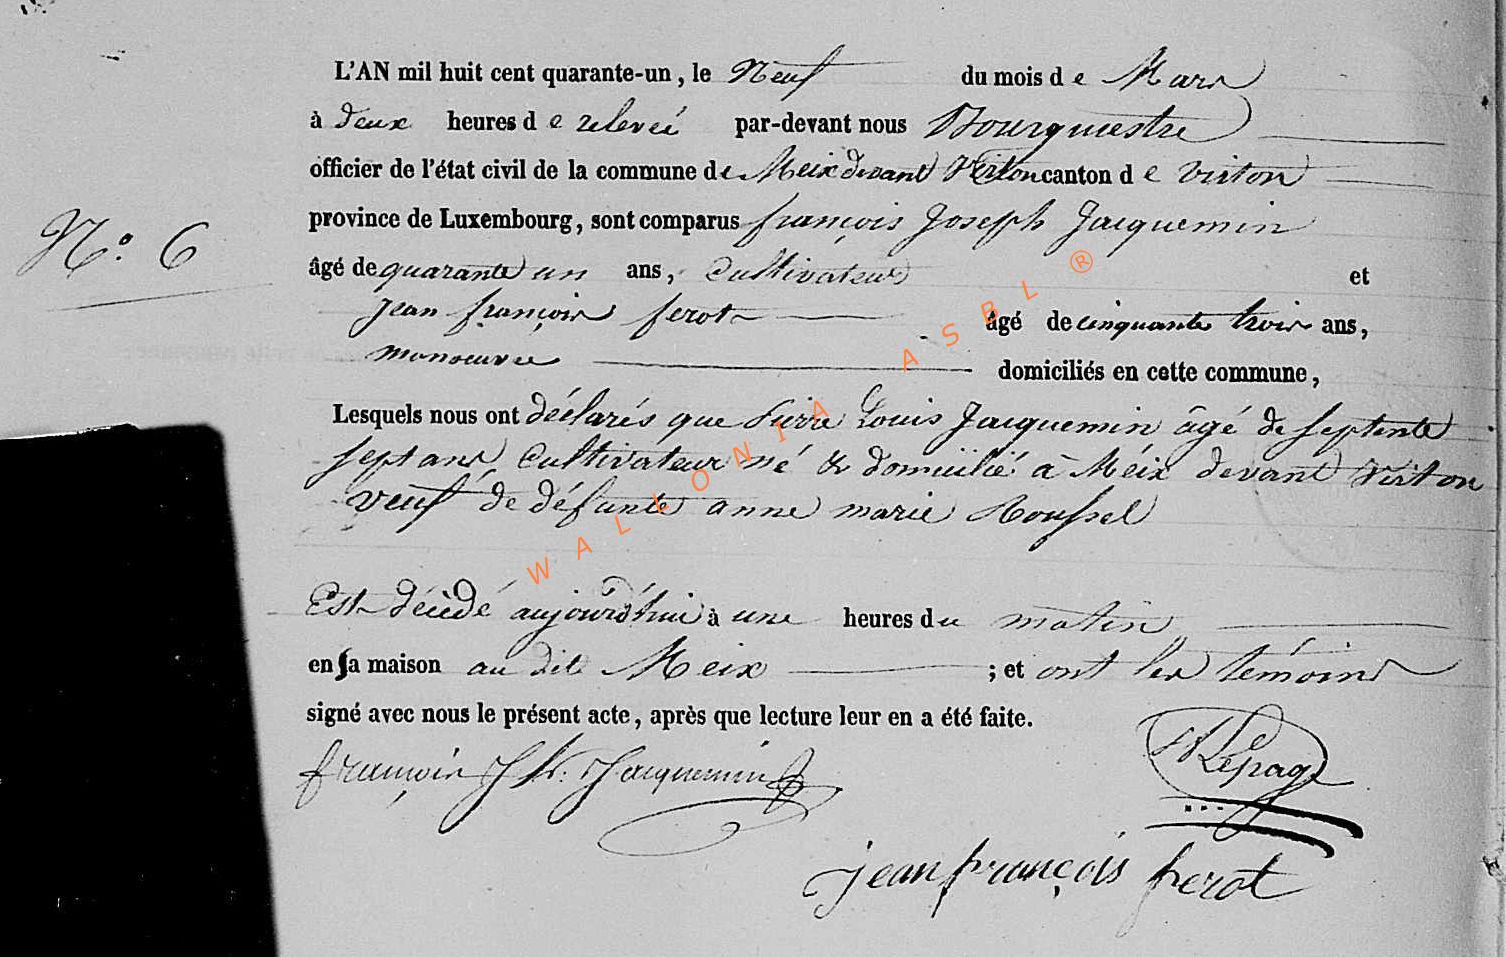 L'AN mil huit cent quarante-un, le Neuf du mois de Mars
à deux heures de relevée par-devant nous Bourgmestre
officier de l'état civil de la commune de Meix devant Virton canton de Virton
province de Luxembourg, sont comparus françois Joseph Jacquemin
N° 6
âgé de quarante un ans, Cultivateur et
Jean françois ferot âgé de cinquante trois ans,
manoeuvre domiciliés en cette commune,
Lesquels nous ont déclarés que Louis Jacquemin âgé de septente
sept ans Cultivateur né & domicilié à Meix devant Virton
veuf de défunte anne marie Roussel
Est décédé aujourd'hui à une heures du matin
en sa maison au dit Meix ; et ont les témoins
signé avec nous le présent acte, après que lecture leur en a été faite.
françois Jh. Jacquemin
Lepage
jean françois ferot
WALLONIA ASBL ®